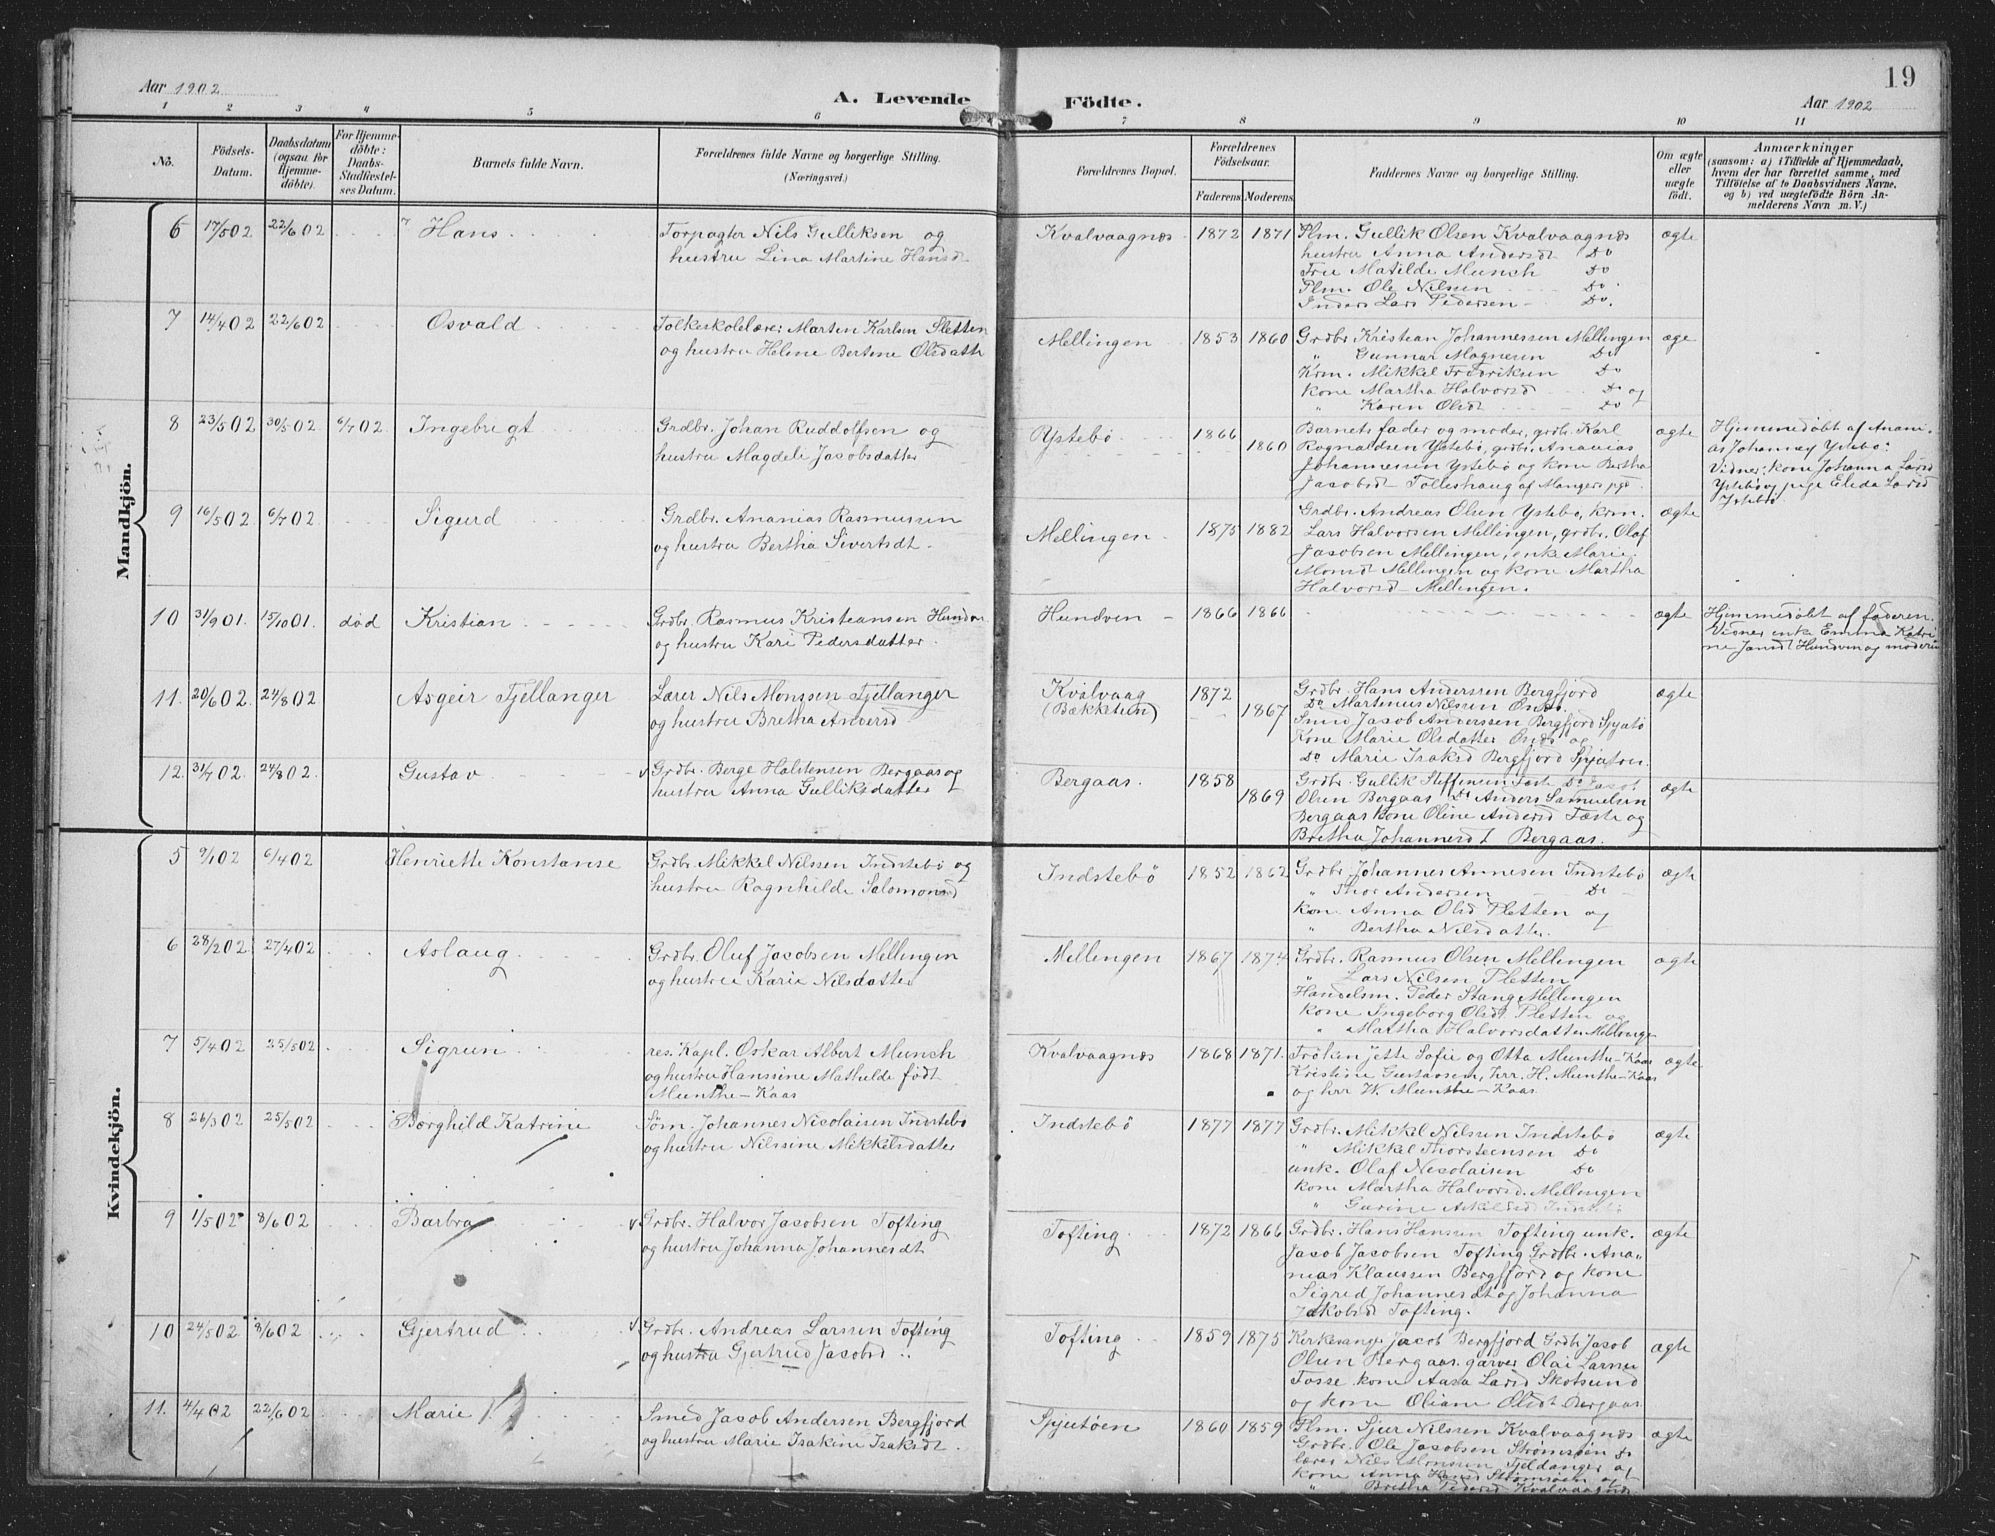 Aar 1902
A. Levende Födte.
Aar 1902
19
1 2 3 4 5 6 7 8 9 10 11
No.
Födsels-
Datum.
Daabsdatum
(ogsaa for
Hjemme-
döbte).
For Hjemme-
döbte:
Daabs-
Stadfæstel-
ses Datum.
Barnets fulde Navn.
Forældrenes fulde Navne og borgerlige Stilling.
(Næringsvei.)
Forældrenes Bopæl.
Forældrenes
Födselsaar.
Faderens Moderens
Faddernes Navne og borgerlige Stilling.
Om ægte
eller
uægte
födt.
Anmærkninger
(saasom: a) i Tilfælde af Hjemmedaab,
hvem der har forrettet samme, med
Tilföielse af to Daabsvidners Navne,
og b) ved uægtefödte Börn An-
melderens Navn m. V.)
Mandkjön.
6 17/5 02 22/6 02 Hans
Forpagter Nils Gulliksen og
hustru Lina Martine Hansd
Kvalvaagnæs 1872 1871
Plm. Gullik Olsen Kvalvaagnæs
hustru Anna Andersd Do
Fru Matilde Munch Do
Plm. Ole Nilsen Do
Inders Lars Pedersen Do.
ægte
7 14/4 02 22/6 02 Osvald
Folkeskolelærer Marten Karlsen Sletten
og hustru Helene Bertine Olsdatte
Mellingen 1853 1860
Grdbr Kristian Johannessen Mellingen
" Gunnar Magnesen Do
Krm. Mikkel Fredriksen Do
kone Martha Halvorsd Do og
" Karen Olsdt Do
æge
8 23/5 02 30/5 02 6/7 02 Ingebrigt
Grdbr. Johan Ruddolfsen og
hustru Magdele Jacobsdatter
Ystebø 1866 1860
Barnets fader og moder, grdbr. Karl
Rognaldsen Ystebø, grdbr. Ananias
Johannessen Ystebø og kone Bertha
Jacobsdt Tolleshaug af Mangers pgd.
ægte
Hjemmedøbt af Anani-
as Johannes Ystebø:
Vidner: kone Johanna Larsd
Ystebø og pige Elida Larsd
Ystebø
9 16/5 02 6/7 02 Sigurd
Grdbr. Ananias Rasmussen
og hustru Bertha Sivertsdt.
Mellingen 1875 1882
Grdbr. Andreas Olsen Ystebø, krm.
Lars Halvorsen Mellingen, grdbr. Olaf
Jacobsen Mellingen, enke Marie
Monsdt Mellingen og kone Martha
Halvorsd Mellingen.
ægte
10 31/9 01. 15/10 01. død Kristian
Grdbr. Rasmus Kristeansen Hundven
og hustru Kari Pedersdatter.
Hundven 1866 1866
ægte
Hjemmedøbt af faderen.
Vidner enke Emma Katri
ne Jansdt Hundven og moderen
11. 20/6 02. 24/8 02 Asgeir Fjellanger
Lærer Nils Monssen Fjellanger
og hustru Bretha Andersd
Kvalvaag
(Bækketun)
1872 1867
Grdbr. Hans Anderssen Bergfjord
Do Martenus Nilsen
Smed Jacob Anderssen Bergfjord Spjutø
Kone Marie Olsdatter og
Do Marie Isaksd Bergfjord Spjutøen
ægte
12. 31/7 02. 24/8 02. Gustav
Grdbr. Berge Halstensen Bergaas og
hustru Anna Gulliksdatter
Bergaas. 1858 1869
Grdbr. Gullik Steffensen Do Jacob
Olsen Bergaas Do Anders Samuelsen
Bergaas kone Oline Andersd Tæste og
Bretha Johannesdt Bergaas.
ægte
Kvindekjön.
5 9/1 02 6/4 02 Henriette Konstanse
Grdbr. Mikkel Nilssen Indstebø og
hustru Ragnhilde Salomonsd
Indstebö 1852 1862
Grdbr Johannes Annesen Indstebø
" Thor Andersen Do
kone Anna Olsd Pletten og
" Bertha Nilsdatte.
ægte
6 28/2 02 27/4 02 Aslaug
Grdbr. Oluf Jacobsen Mellingen
og hustru Karie Nilsdatter
Mellingen 1867 1874
Grdbr. Rasmus Olsen Mellingen
" Lars Nilsen Pletten
Handelsm. Peder Stang Mellingen
kone Ingeborg Olsdt Pletten og
" Martha Halvorsdatter Mellingen
ægte
7 5/4 02 25/5 02 Sigrun
res. Kapl. Oskar Albert Munch
og hustru Hanssine Mathilde født
Munthe-Kaas
Kvalvaagnæs 1868 1871.
Frøken Jette Sofie og Otta Munthe-Kaas
Kristine Gustavsen, hrr. H. Munthe-Kaas
og hrr W. Munthe-Kaas
ægte
8 26/3 02 25/5 02 Borghild Katrine
Søm. Johannes Nicolaisen Indstebø
og hustru Nilssine Mikkelsdatter
Indstebö 1877 1877
Grdbr. Mikkel Nilsen Indstebø
" Mikkel Thorsteensen Do
unk. Olaf Nicolaisen Do
kone Martha Halvorsd. Mellingen
" Gurine Askelsd Indstebø
ægte
9 1/5 02 8/6 02 Barbra
Grdbr. Halvor Jacobsen Tofting
og hustru Johanna Johannesdt
Tofting 1872 1866
Grdbr. Hans Hansen Tofting unk.
Jacob Jacobsen Tofting Grdbr. Ana-
nias Klaussen Bergfjord og kone
Sigrid Johannesdt og Johanna
Jakobsd Tofting.
ægte
10 24/5 02 8/6 02 Gjertrud
Grdbr. Andreas Larssen Tofting
og hustru Gjertrud Jacobsd
Tofting 1859 1875
Kirkesanger Jacob Bergfjord Grdbr Jacob
Olsen Bergaas garver Olai Larsen
Fosse kone Aasa Larsd Skotsund
og kone Oliane Olsdt Bergaas
ægte
11. 4/4 02 22/6 02 Marie
Smed Jacob Andersen Bergfjord
og hustru Marie Isakine Isaksdt.
Spjutøen 1860 1859
Plm. Sjur Nilssen Kvalvaagnæs
Grdbr. Ole Jacobsen Strømsøen Do
lærer Nils Monssen Fjeldanger og
kone Anna Hansd Strømsøen og
" Bretha Pedersd Kvalvaagnæs
ægte